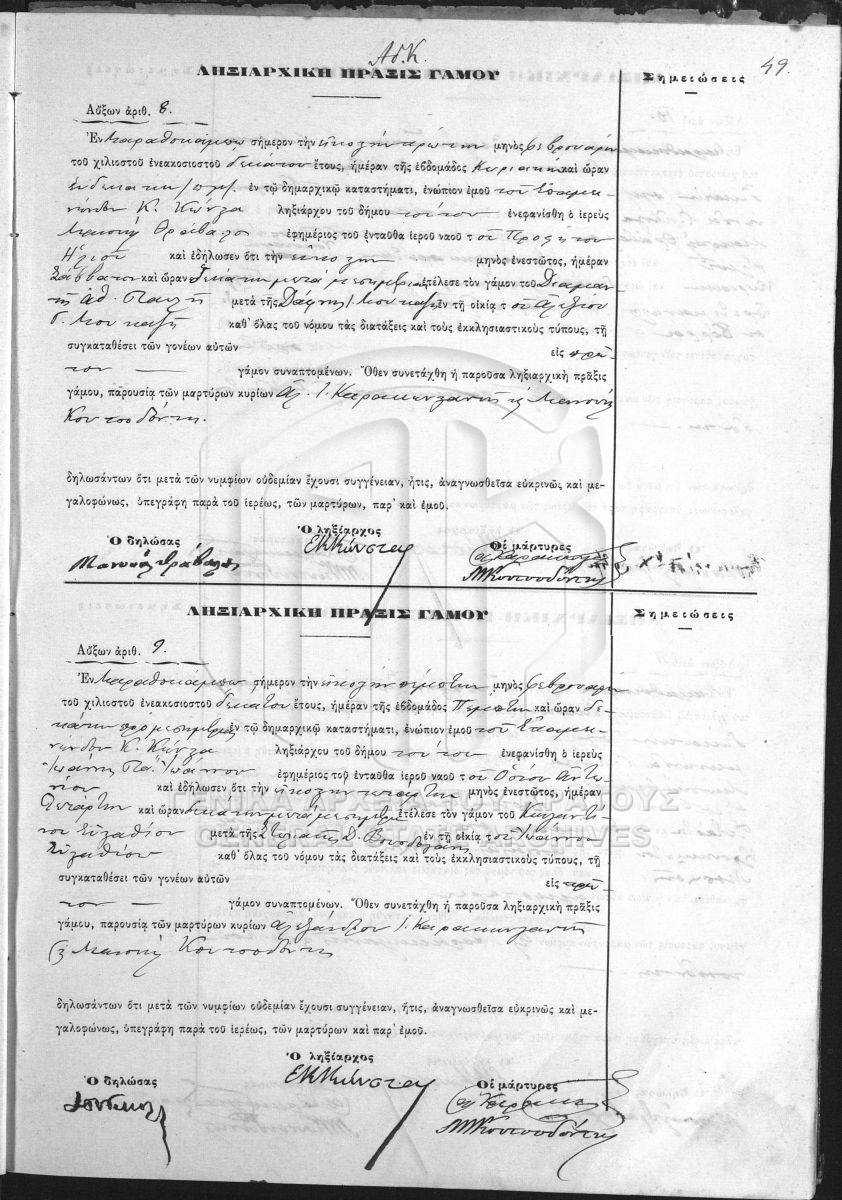 49.
ΛΗΞΙΑΡΧΙΚΗ ΠΡΑΞΙΣ ΓΑΜΟΥ
Σημειώσεις
Αὔξων ἀριθ. 8.
Ἐν Μαραθοκάμπῳ σήμερον τὴν εἰκοστὴν πρώτην μηνὸς Φεβρουαρίου
τοῦ χιλιοστοῦ ἐνεακοσιοστοῦ δεκάτου ἔτους, ἡμέραν τῆς ἑβδομάδος Κυριακὴν καὶ ὥραν
ἑνδεκάτην π.μ. ἐν τῷ δημαρχικῷ καταστήματι, ἐνώπιον ἐμοῦ τοῦ Ἐπαμει-
νώνδου Κ. ληξιάρχου τοῦ δήμου τούτου ἐνεφανίσθη ὁ ἱερεὺς
Μανουὴλ Θράβαλος ἐφημέριος τοῦ ἐνταῦθα ἱεροῦ ναοῦ τοῦ Προφήτου
Ἠλιοῦ καὶ ἐδήλωσεν ὅτι τὴν εἰκοστὴν μηνὸς ἐνεστῶτος, ἡμέραν
Σάββατον καὶ ὥραν δεκάτην μετὰ μεσημβρίαν ἐτέλεσε τὸν γάμον τοῦ Διαμαν-
τῆ μετὰ τῆς Δάφνης ἐν τῇ οἰκίᾳ τοῦ Ἀλεξίου
καθ' ὅλας τοῦ νόμου τὰς διατάξεις καὶ τοὺς ἐκκλησιαστικοὺς τύπους, τῇ
συγκαταθέσει τῶν γονέων αὐτῶν εἰς πρῶ-
τον — γάμον συναπτομένων. Ὅθεν συνετάχθη ἡ παροῦσα ληξιαρχικὴ πρᾶξις
γάμου, παρουσίᾳ τῶν μαρτύρων κυρίων Ἀλ. Ι. Καρακωνσταντῆ καὶ Μανουὴλ
Κοντοδόντη.
δηλωσάντων ὅτι μετὰ τῶν νυμφίων οὐδεμίαν ἔχουσι συγγένειαν, ἥτις, ἀναγνωσθεῖσα εὐκρινῶς καὶ με-
γαλοφώνως, ὑπεγράφη παρὰ τοῦ ἱερέως, τῶν μαρτύρων, παρ' καὶ ἐμοῦ.
Ὁ δηλώσας
Ὁ ληξίαρχος
Οἱ μάρτυρες
ΛΗΞΙΑΡΧΙΚΗ ΠΡΑΞΙΣ ΓΑΜΟΥ
Σημειώσεις
Αὔξων ἀριθ. 9.
Ἐν Μαραθοκάμπῳ σήμερον τὴν εἰκοστὴν πέμπτην μηνὸς Φεβρουαρίου
τοῦ χιλιοστοῦ ἐνεακοσιοστοῦ δεκάτου ἔτους, ἡμέραν τῆς ἑβδομάδος Πέμπτην καὶ ὥραν δε-
κάτην πρὸ μεσημβρίας ἐν τῷ δημαρχικῷ καταστήματι, ἐνώπιον ἐμοῦ τοῦ Ἐπαμει-
νώνδου Κ. ληξιάρχου τοῦ δήμου τούτου ἐνεφανίσθη ὁ ἱερεὺς
Ἰωάννης ἐφημέριος τοῦ ἐνταῦθα ἱεροῦ ναοῦ τοῦ Ὁσίου Ἀντω-
νίου καὶ ἐδήλωσεν ὅτι τὴν εἰκοστὴν τετάρτην μηνὸς ἐνεστῶτος, ἡμέραν
Τετάρτην καὶ ὥραν δεκάτην μετὰ μεσημβρίαν ἐτέλεσε τὸν γάμον τοῦ Κωνσταντί-
νου Εὐσταθίου μετὰ τῆς ἐν τῇ οἰκίᾳ τοῦ Ἰωάννου
Εὐσταθίου καθ' ὅλας τοῦ νόμου τὰς διατάξεις καὶ τοὺς ἐκκλησιαστικοὺς τύπους, τῇ
συγκαταθέσει τῶν γονέων αὐτῶν εἰς πρῶ-
τον — γάμον συναπτομένων. Ὅθεν συνετάχθη ἡ παροῦσα ληξιαρχικὴ πρᾶξις
γάμου, παρουσίᾳ τῶν μαρτύρων κυρίων Ἀλεξάνδρου Ι. Καρακωνσταντῆ
καὶ Μανουὴλ Κοντοδόντη
δηλωσάντων ὅτι μετὰ τῶν νυμφίων οὐδεμίαν ἔχουσι συγγένειαν, ἥτις, ἀναγνωσθεῖσα εὐκρινῶς καὶ με-
γαλοφώνως, ὑπεγράφη παρὰ τοῦ ἱερέως, τῶν μαρτύρων καὶ παρ' ἐμοῦ.
Ὁ δηλώσας
Ὁ ληξίαρχος
Οἱ μάρτυρες
ΓΕΝΙΚΑ ΑΡΧΕΙΑ ΤΟΥ ΚΡΑΤΟΥΣ
GENERAL STATE ARCHIVES